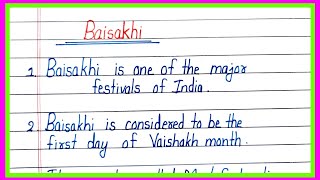 Baisakhi
1. Baisakhi is one of the major
festivals of India.
2. Baisakhi is considered to be the
first day of Vaishakh month.